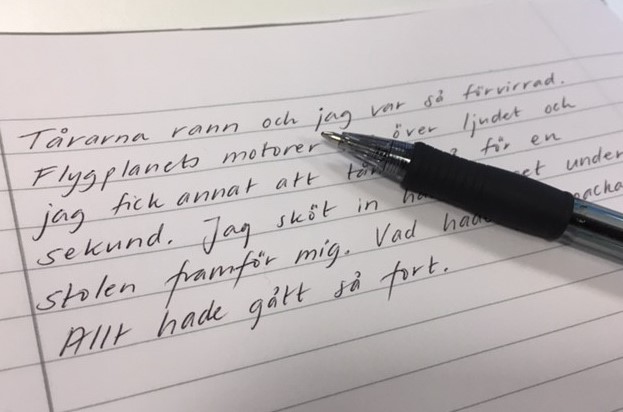 Tårarna rann och jag var så förvirrad.
Flygplanets motorer över ljudet och
jag fick annat att för en
sekund. Jag sköt in under
stolen framför mig. Vad
Allt hade gått så fort.